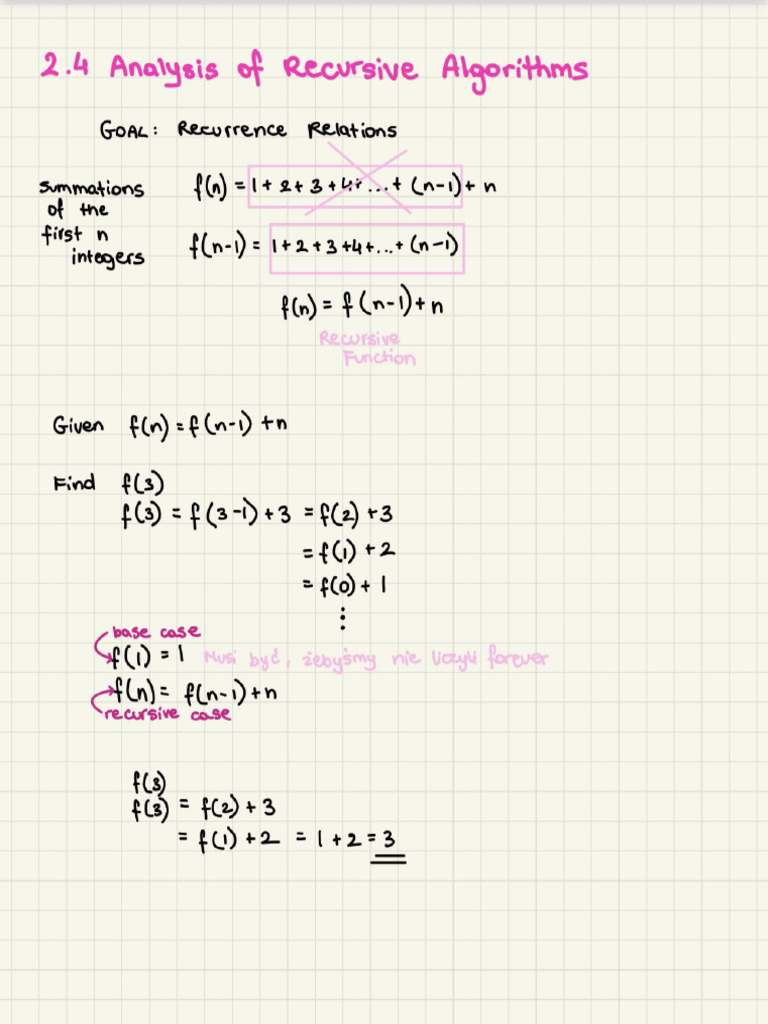 2.4 Analysis of Recursive Algorithms
GOAL: Recurrence Relations
summations
of the
first n
integers
f(n) = 1 + 2 + 3 + 4 + ... + (n-1) + n
f(n-1) = 1 + 2 + 3 + 4 + ... + (n-1)
f(n) = f(n-1) + n
Recursive
Function
Given f(n) = f(n-1) + n
Find f(3)
f(3) = f(3-1) + 3 = f(2) + 3
= f(1) + 2
= f(0) + 1
⋮
base case
f(1) = 1 Musi być, żebyśmy nie liczyli forever
f(n) = f(n-1) + n
recursive case
f(3)
f(3) = f(2) + 3
= f(1) + 2 = 1 + 2 = 3